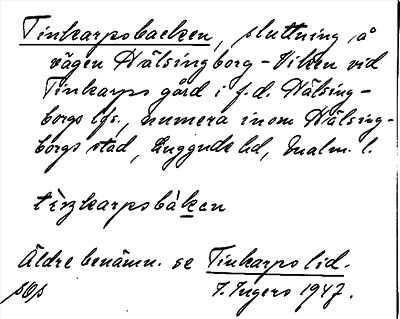 Tinkarpsbacken, sluttning å
vägen Hälsingborg - Viken vid
Tinkarps gård i f.d. Hälsing-
borgs lfs., numera inom Hälsing-
borgs stad, Luggude hd, Malm. l.
tiŋkarpsbàkan
Äldre benämn. se Tinkarps lid.
I. Ingers 1947.